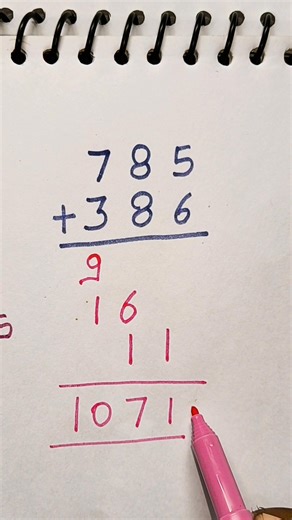 785
+386
9
16
11
1071